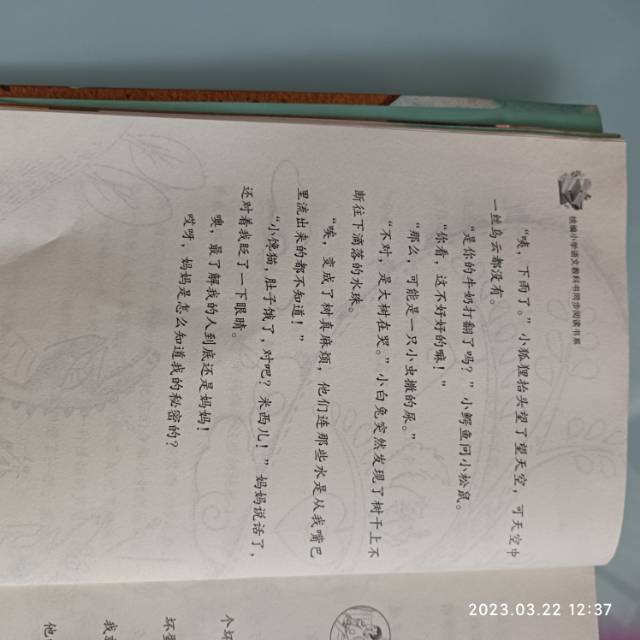 统编小学语文教科书同步阅读书系
“咦，下雨了。”小狐狸抬头望了望天空，可天空中
一丝乌云都没有。
“是你的牛奶打翻了吗？”小鳄鱼问小松鼠。
“你看，这不好好的嘛！”
“那么，可能是一只小虫撒的尿。”
“不对，是大树在哭。”小白兔突然发现了树干上不
断往下滴落的水珠。
“唉，变成了树真麻烦，他们连那些水是从我嘴巴
里流出来的都不知道！”
“小馋猫，肚子饿了，对吧？朱西儿！”妈妈说话了，
还对着我眨了一下眼睛。
噢，最了解我的人到底还是妈妈！
哎呀，妈妈是怎么知道我的秘密的？
个
坏
我
他
2023.03.22 12:37